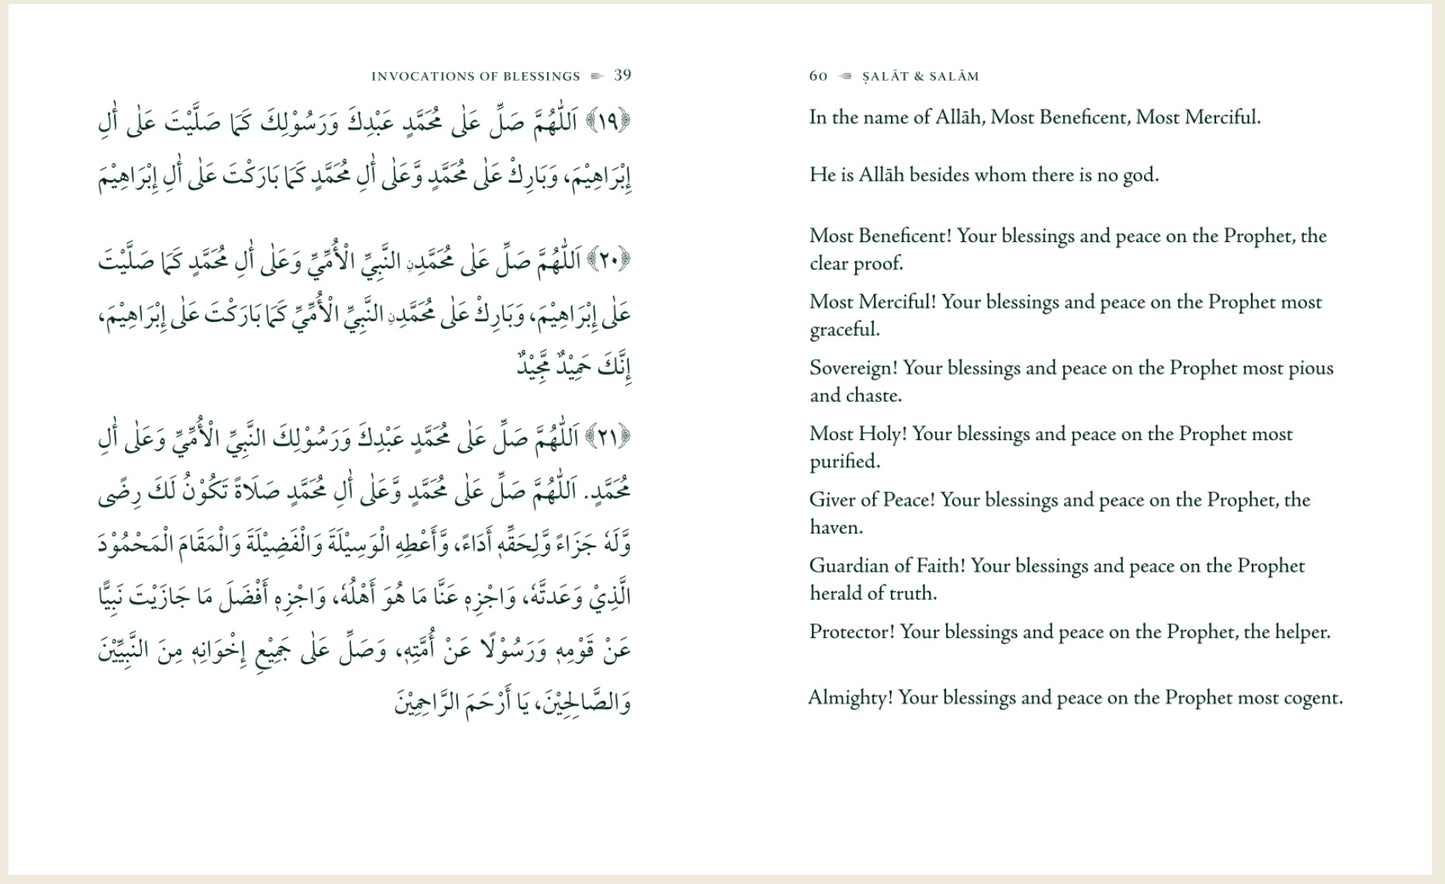 INVOCATIONS OF BLESSINGS 39
﴿١٩﴾ اَللّٰهُمَّ صَلِّ عَلٰى مُحَمَّدٍ عَبْدِكَ وَرَسُوْلِكَ كَمَا صَلَّيْتَ عَلٰى أٰلِ
إِبْرَاهِيْمَ، وَبَارِكْ عَلٰى مُحَمَّدٍ وَّعَلٰى أٰلِ مُحَمَّدٍ كَمَا بَارَكْتَ عَلٰى أٰلِ إِبْرَاهِيْمَ
﴿٢٠﴾ اَللّٰهُمَّ صَلِّ عَلٰى مُحَمَّدِنِ النَّبِيِّ الْأُمِّيِّ وَعَلٰى أٰلِ مُحَمَّدٍ كَمَا صَلَّيْتَ
عَلٰى إِبْرَاهِيْمَ، وَبَارِكْ عَلٰى مُحَمَّدِنِ النَّبِيِّ الْأُمِّيِّ كَمَا بَارَكْتَ عَلٰى إِبْرَاهِيْمَ،
إِنَّكَ حَمِيْدٌ مَّجِيْدٌ
﴿٢١﴾ اَللّٰهُمَّ صَلِّ عَلٰى مُحَمَّدٍ عَبْدِكَ وَرَسُوْلِكَ النَّبِيِّ الْأُمِّيِّ وَعَلٰى أٰلِ
مُحَمَّدٍ. اَللّٰهُمَّ صَلِّ عَلٰى مُحَمَّدٍ وَّعَلٰى أٰلِ مُحَمَّدٍ صَلَاةً تَكُوْنُ لَكَ رِضًى
وَّلَهٗ جَزَاءً وَّلِحَقِّهٖ أَدَاءً، وَّأَعْطِهِ الْوَسِيْلَةَ وَالْفَضِيْلَةَ وَالْمَقَامَ الْمَحْمُوْدَ
الَّذِيْ وَعَدتَّهٗ، وَاجْزِهٖ عَنَّا مَا هُوَ أَهْلُهٗ، وَاجْزِهٖ أَفْضَلَ مَا جَازَيْتَ نَبِيًّا
عَنْ قَوْمِهٖ وَرَسُوْلًا عَنْ أُمَّتِهٖ، وَصَلِّ عَلٰى جَمِيْعِ إِخْوَانِهٖ مِنَ النَّبِيِّيْنَ
وَالصَّالِحِيْنَ، يَا أَرْحَمَ الرَّاحِمِيْنَ
60 ṢALĀT & SALĀM
In the name of Allāh, Most Beneficent, Most Merciful.
He is Allāh besides whom there is no god.
Most Beneficent! Your blessings and peace on the Prophet, the
clear proof.
Most Merciful! Your blessings and peace on the Prophet most
graceful.
Sovereign! Your blessings and peace on the Prophet most pious
and chaste.
Most Holy! Your blessings and peace on the Prophet most
purified.
Giver of Peace! Your blessings and peace on the Prophet, the
haven.
Guardian of Faith! Your blessings and peace on the Prophet
herald of truth.
Protector! Your blessings and peace on the Prophet, the helper.
Almighty! Your blessings and peace on the Prophet most cogent.